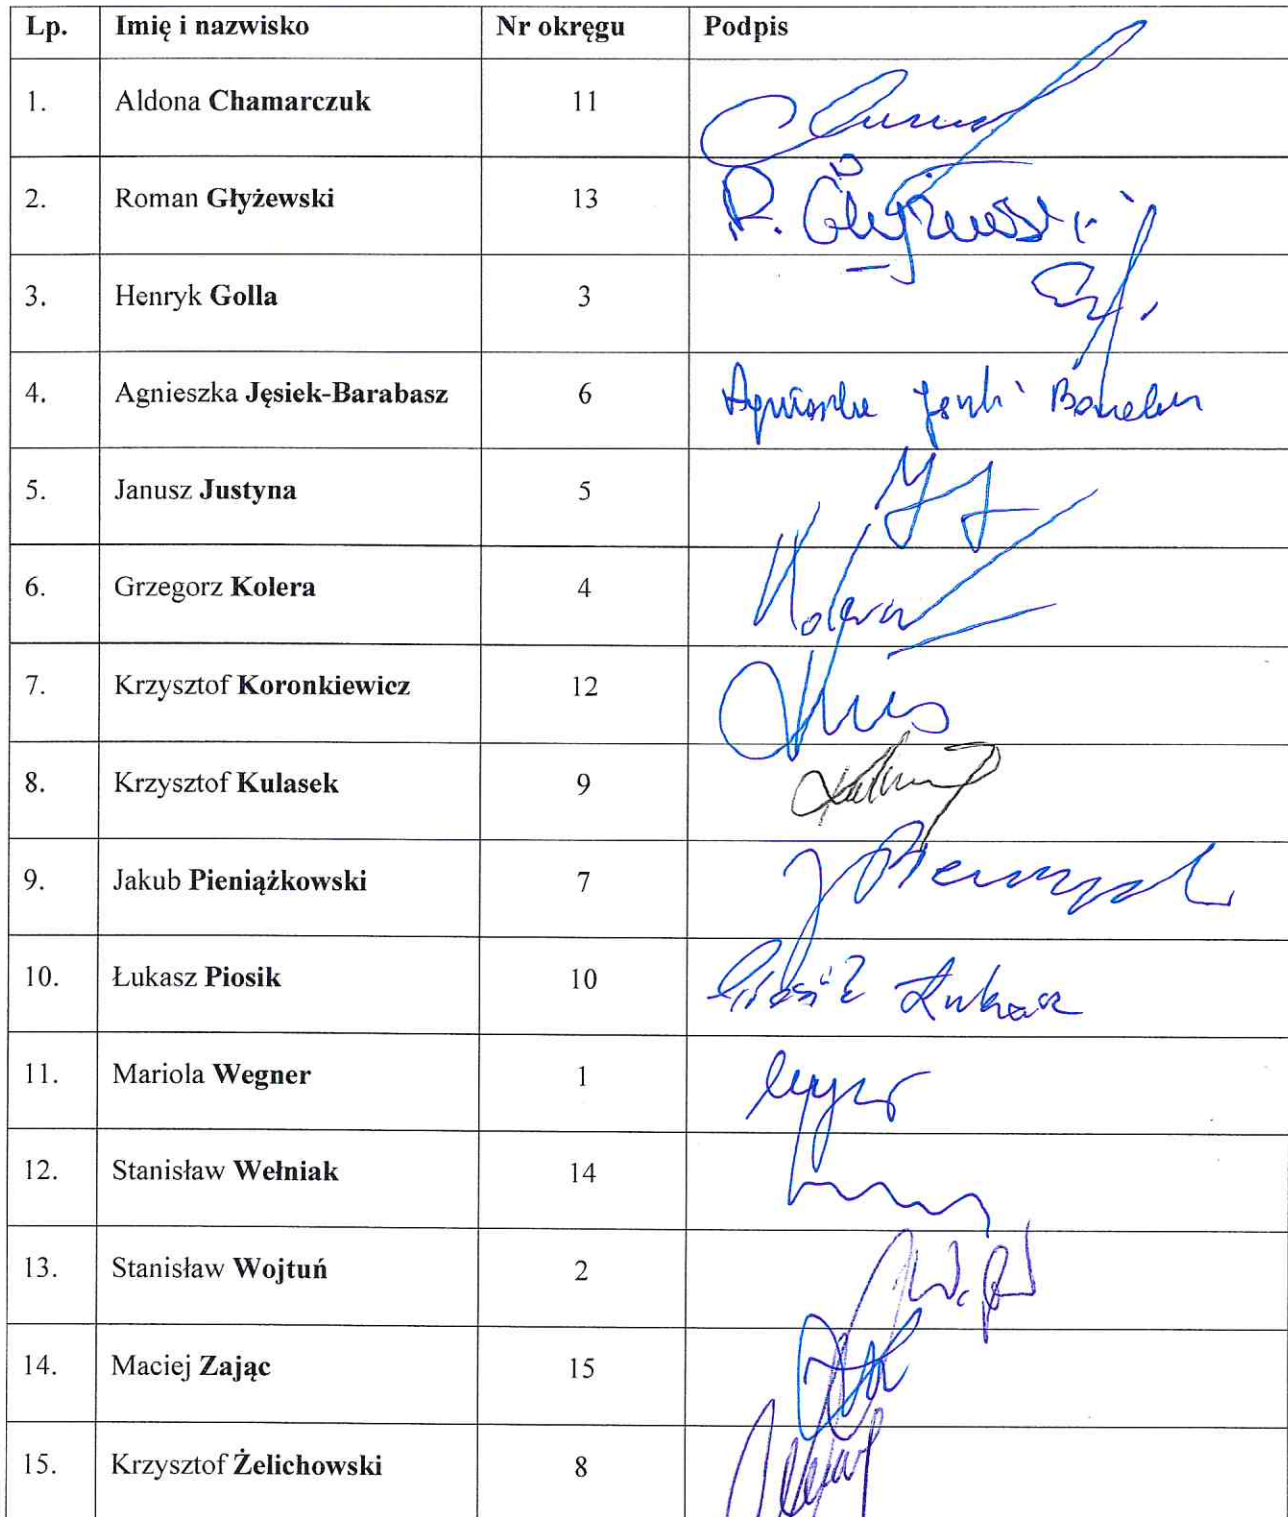 Lp. Imię i nazwisko Nr okręgu Podpis
1. Aldona Chamarczuk 11
2. Roman Głyżewski 13 R. Głyżewski
3. Henryk Golla 3
4. Agnieszka Jęsiek-Barabasz 6
5. Janusz Justyna 5 JJ
6. Grzegorz Kolera 4 Kolera
7. Krzysztof Koronkiewicz 12
8. Krzysztof Kulasek 9
9. Jakub Pieniążkowski 7
10. Łukasz Piosik 10 Piosik Łukasz
11. Mariola Wegner 1
12. Stanisław Wełniak 14
13. Stanisław Wojtuń 2
14. Maciej Zając 15
15. Krzysztof Żelichowski 8